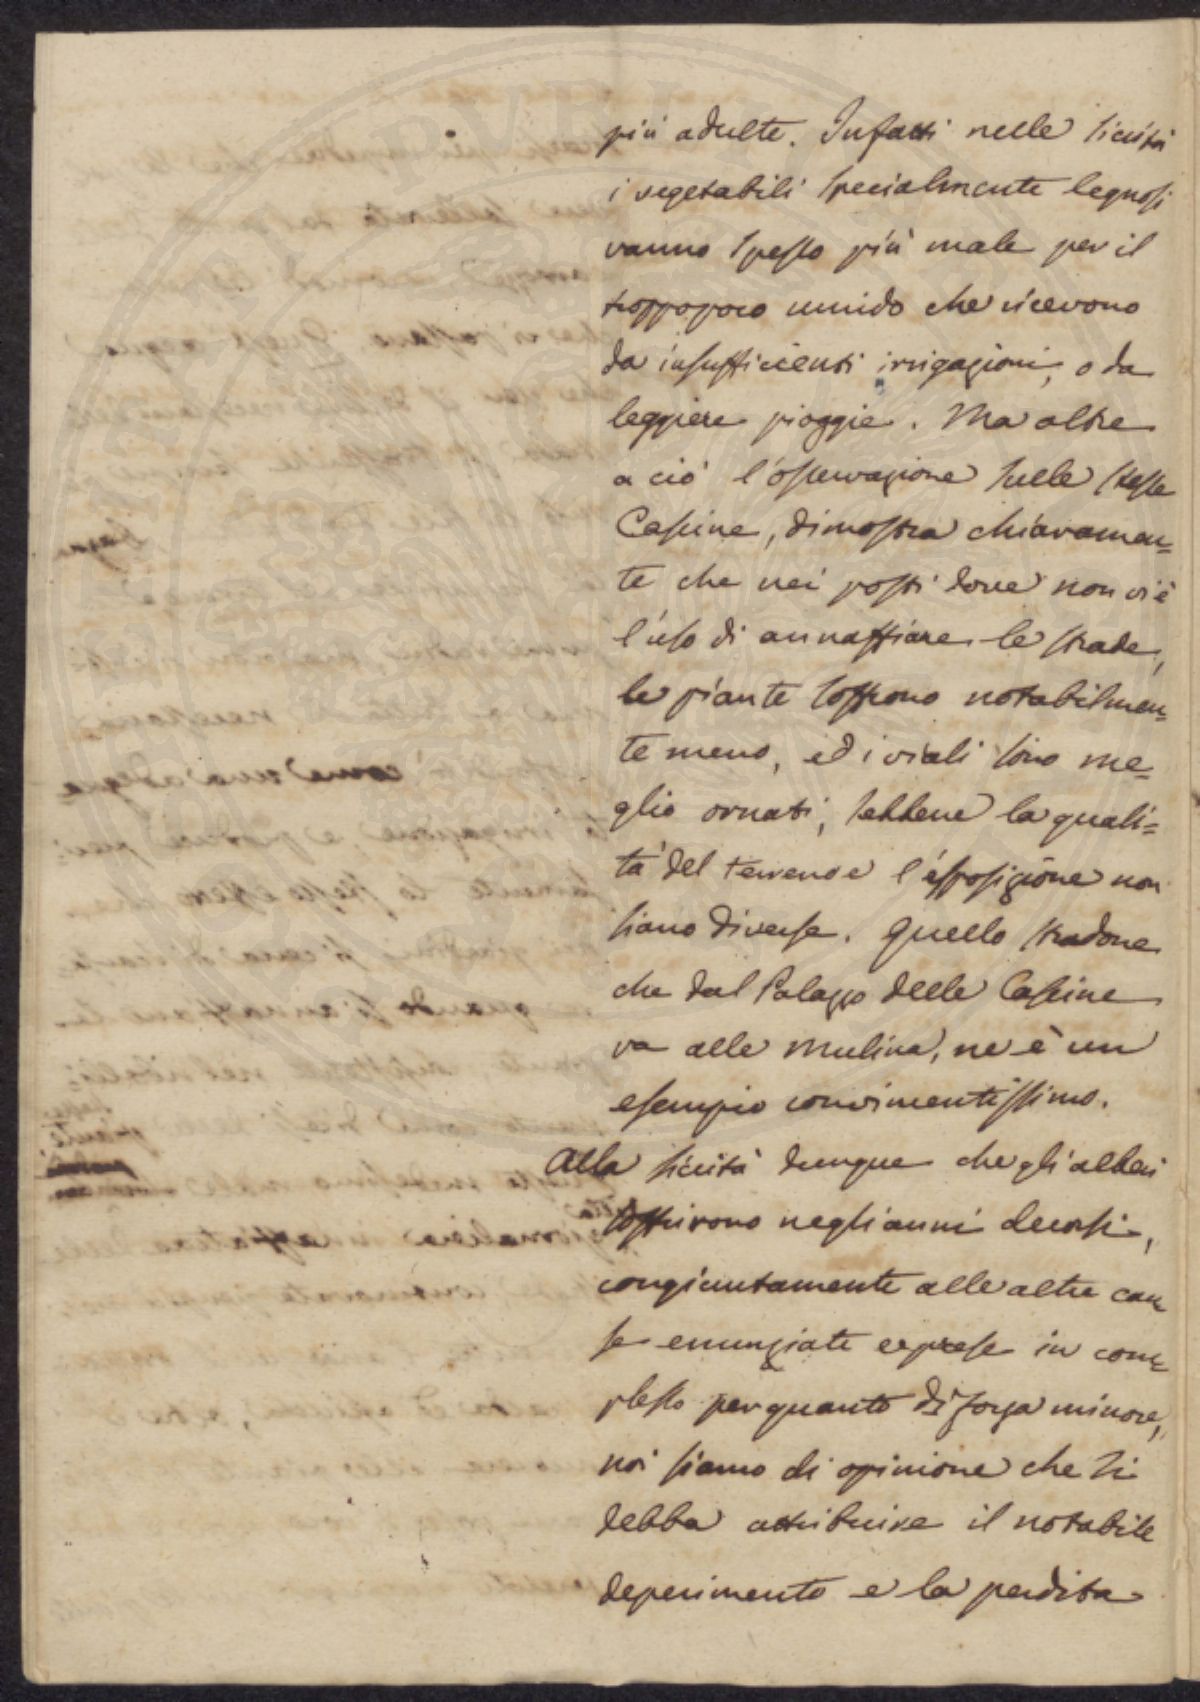 più adulte. Infatti nelle siccità
i vegetabili specialmente legnosi
vanno spesso più male per il
troppo poco umido che ricevono
da insufficienti irrigazioni, o da
leggiere pioggie. Ma oltre
a ciò l'osservazione sulle stesse
Cascine, dimostra chiaramen=
te che nei posti dove non vi è
l'uso di annaffiare le strade,
le piante soffrono notabilmen=
te meno, ed i viali sono me=
glio ornati, sebbene la quali=
tà del terreno e l'esposizione non
siano diverse. Quello stradone
che dal Palazzo delle Cascine
va alle Mulina, ne è un
esempio convincentissimo.
Alla siccità dunque che gli alberi
soffrirono negli anni decorsi,
congiuntamente alle altre cau=
se enunziate e prese in com=
plesso per quanto di forza minore,
noi siamo di opinione che si
debba attribuire il notabile
deperimento e la perdita